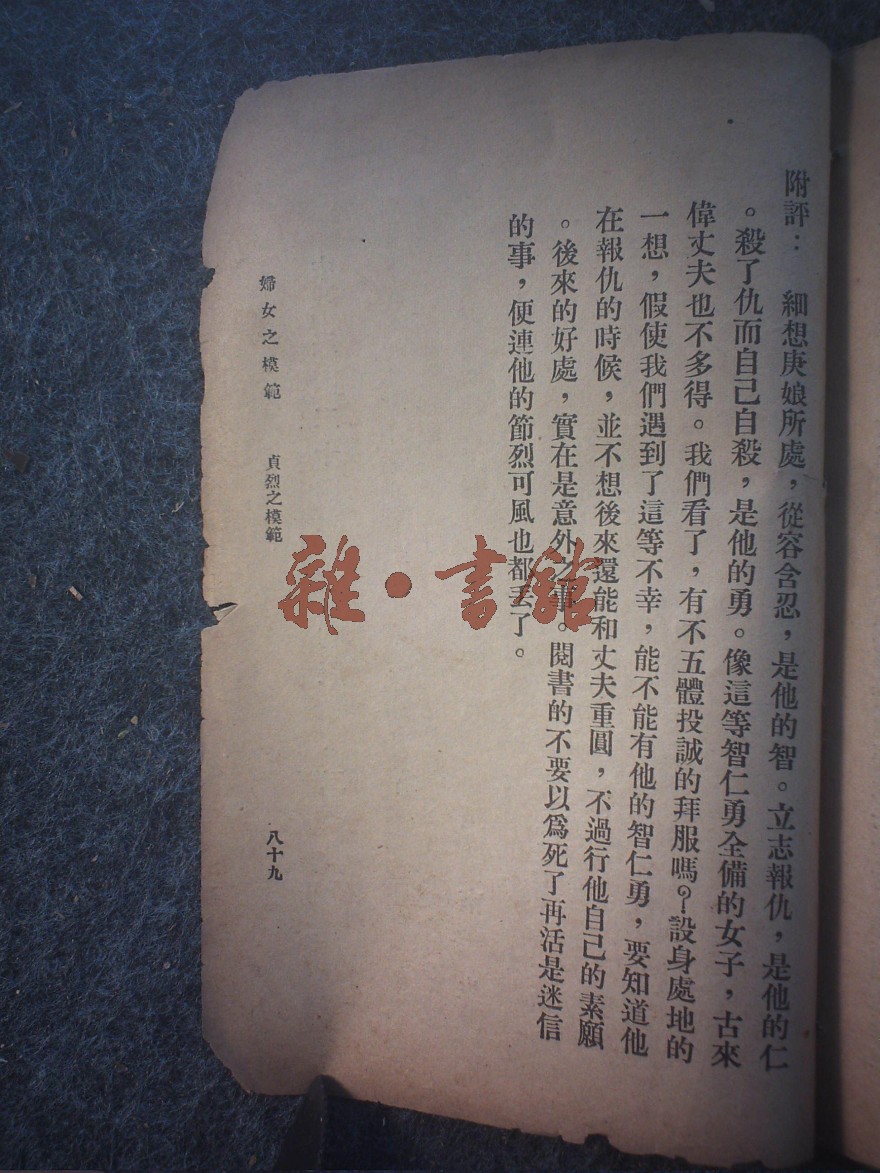 附評：　細想庚娘所處，從容含忍，是他的智。立志報仇，是他的仁
。殺了仇而自己自殺，是他的勇。像這等智仁勇全備的女子，古來
偉丈夫也不多得。我們看了，有不五體投誠的拜服嗎？設身處地的
一想，假使我們遇到了這等不幸，能不能有他的智仁勇，要知道他
在報仇的時候，並不想後來還能和丈夫重圓，不過行他自己的素願
。後來的好處，實在是意外之事。閱書的不要以爲死了再活是迷信
的事，便連他的節烈可風也都丟了。
婦女之模範　貞烈之模範
八十九
雜·書館